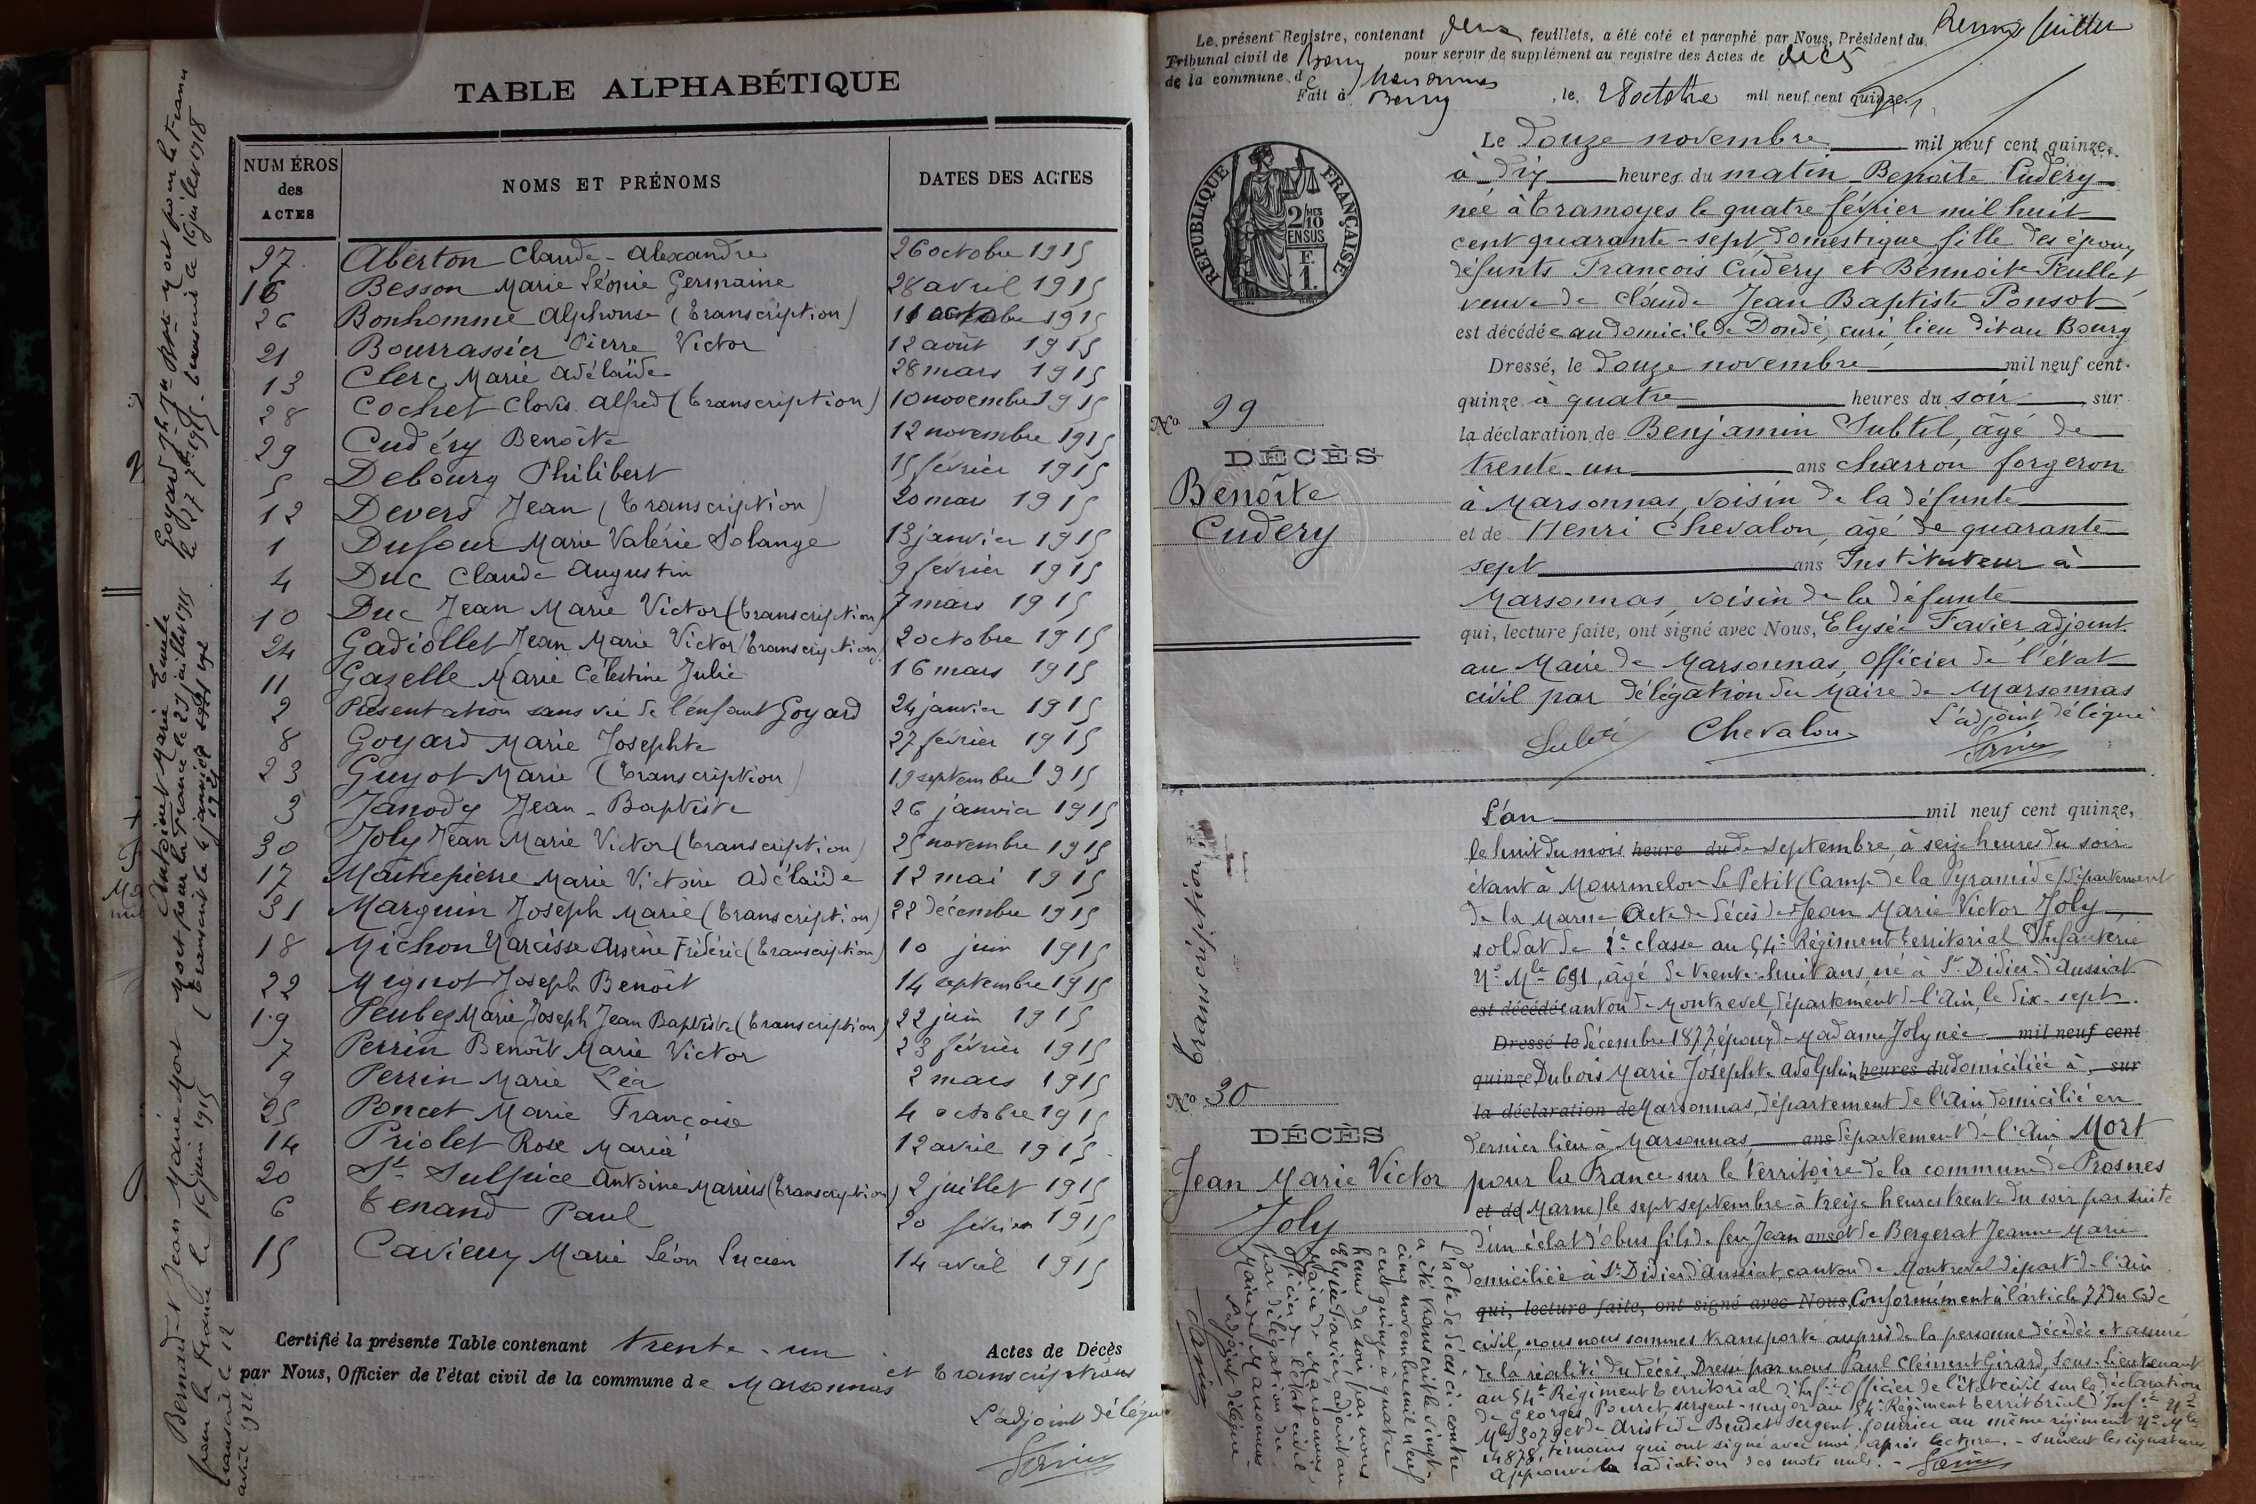 TABLE ALPHABÉTIQUE
NUMÉROS des ACTES
NOMS ET PRÉNOMS
DATES DES ACTES
27 Aberton Claude-Alexandre 26 octobre 1915
16 Besson Marie Léonie Germaine 28 avril 1915
26 Bonhomme Alphonse (transcription) 11 octobre 1915
21 Bourrassier Pierre Victor 12 août 1915
13 Clerc Marie Adélaïde 28 mars 1915
28 Cochet Clovis Alfred (transcription) 10 novembre 1915
29 Cudéry Benoîte 12 novembre 1915
5 Debourg Philibert 15 février 1915
12 Devers Jean (transcription) 20 mars 1915
1 Dufour Marie Valérie Solange 13 janvier 1915
4 Duc Claude Augustin 9 février 1915
10 Duc Jean Marie Victor (transcription) 7 mars 1915
24 Gadiollet Jean Marie Victor (transcription) 2 octobre 1915
11 Gazelle Marie Célestine Julie 16 mars 1915
2 Présentation sans vie de l'enfant Goyard 24 janvier 1915
8 Goyard Marie Josephte 27 février 1915
23 Guyot Marie (transcription) 19 septembre 1915
3 Janody Jean-Baptiste 26 janvier 1915
30 Joly Jean Marie Victor (transcription) 25 novembre 1915
17 Maîtrepierre Marie Victoire Adélaïde 12 mai 1915
31 Marguin Joseph Marie (transcription) 22 décembre 1915
18 Michon Narcisse Arsène Frédéric (transcription) 10 juin 1915
22 Mignot Joseph Benoît 14 septembre 1915
19 Peubey Marie Joseph Jean Baptiste (transcription) 22 juin 1915
7 Perrin Benoît Marie Victor 23 février 1915
9 Perrin Marie Léa 2 mars 1915
25 Poncet Marie Françoise 4 octobre 1915
14 Priolet Rose Marie 12 avril 1915
20 St Sulpice Antoine Marius (transcription) 2 juillet 1915
6 Tenand Paul 20 février 1915
15 Cavieux Marie Léon Lucien 14 avril 1915
Certifié la présente Table contenant trente-un Actes de Décès
par Nous, Officier de l'état civil de la commune de Marsonnas et transcriptions
L'adjoint délégué
Favier
Goyard Jh Jn Bte mort pour la France
le 27 7bre 1915 - transcrit le 16 juillet 1918
Antoinet Marie Emile
mort pour la France le 25 juillet 1915
(transcrit le 4 janvier
Bernardet Jean Marie mort
pour la France le 16 juin 1915
transcrit le 12
Le présent Registre, contenant deux feuillets, a été coté et paraphé par Nous, Président du
Tribunal civil de Bourg pour servir de supplément au registre des Actes de décès
de la commune de Marsonnas
Fait à Bourg, le 28 octobre mil neuf cent quinze.
RÉPUBLIQUE FRANÇAISE
2/10 EN SUS
F. 1.
Le douze novembre mil neuf cent quinze,
à dix heures du matin Benoîte Cudéry
née à Tramoyes le quatre février mil huit
cent quarante-sept, domestique, fille des époux
défunts François Cudéry et Bennoite Feullet,
veuve de Claude Jean Baptiste Ponsot
est décédée au domicile de Dondé, curé, lieu dit au Bourg
Dressé, le douze novembre mil neuf cent
quinze à quatre heures du soir, sur
la déclaration de Benjamin Subtil, âgé de
trente-un ans charron forgeron
à Marsonnas, voisin de la défunte
et de Henri Chevalon, âgé de quarante
sept ans Instituteur à
Marsonnas, voisin de la défunte
qui, lecture faite, ont signé avec Nous, Elysée Favier, adjoint
au Maire de Marsonnas, Officier de l'état
civil par délégation du Maire de Marsonnas
L'adjoint délégué
Subtil Chevalon Favier
No 29
DÉCÈS
Benoîte
Cudéry
L'an mil neuf cent quinze,
le huit du mois heure du de septembre, à seize heures du soir
étant à Mourmelon Le Petit (Camp de la Pyramide) département
de la Marne Acte de décès de Jean Marie Victor Joly,
soldat de 2e classe au 54e Régiment territorial d'Infanterie
No Mle 691, âgé de trente-huit ans, né à St Didier d'Aussiat
est décédé canton de Montrevel, département de l'Ain, le dix-sept
Dressé le décembre 1877, époux de Madame Joly née mil neuf cent
quinze Dubois Marie Josephte Adolphine heures du domiciliée à sur
la déclaration de Marsonnas, département de l'Ain domicilié en
dernier lieu à Marsonnas ans département de l'Ain Mort
pour la France sur le territoire de la commune de Prosnes
et de (Marne) le sept septembre à treize heures trente du soir par suite
d'un éclat d'obus fils de feu Jean ans et de Bergerat Jeanne Marie
domiciliée à St Didier d'Aussiat, canton de Montrevel départ. de l'Ain
qui, lecture faite, ont signé avec Nous, Conformément à l'article 77 du Code
civil, nous nous sommes transporté auprès de la personne décédée et assuré
de la réalité du décès, Dressé par nous Paul Clément Girard, Sous-lieutenant
au 54e Régiment territorial d'Infie Officier de l'état civil sur la déclaration
de Georges Pouret sergent-major au 54e Régiment territorial d'Infie No
Mle 3079 et de Aristide Brudet sergent-fourrier au même régiment No Mle
14878, témoins qui ont signé avec moi après lecture. - Suivent les signatures.
Approuvé la radiation des mots nuls. - Favier
transcription
No 30
DÉCÈS
Jean Marie Victor
Joly
L'acte de décès ci-contre
a été transcrit le vingt-
cinq novembre mil neuf
cent quinze à quatre
heures du soir par nous
Elysée Favier, adjoint au
Maire de Marsonnas,
officier de l'état civil
par délégation du
Maire de Marsonnas
L'adjoint délégué
Favier